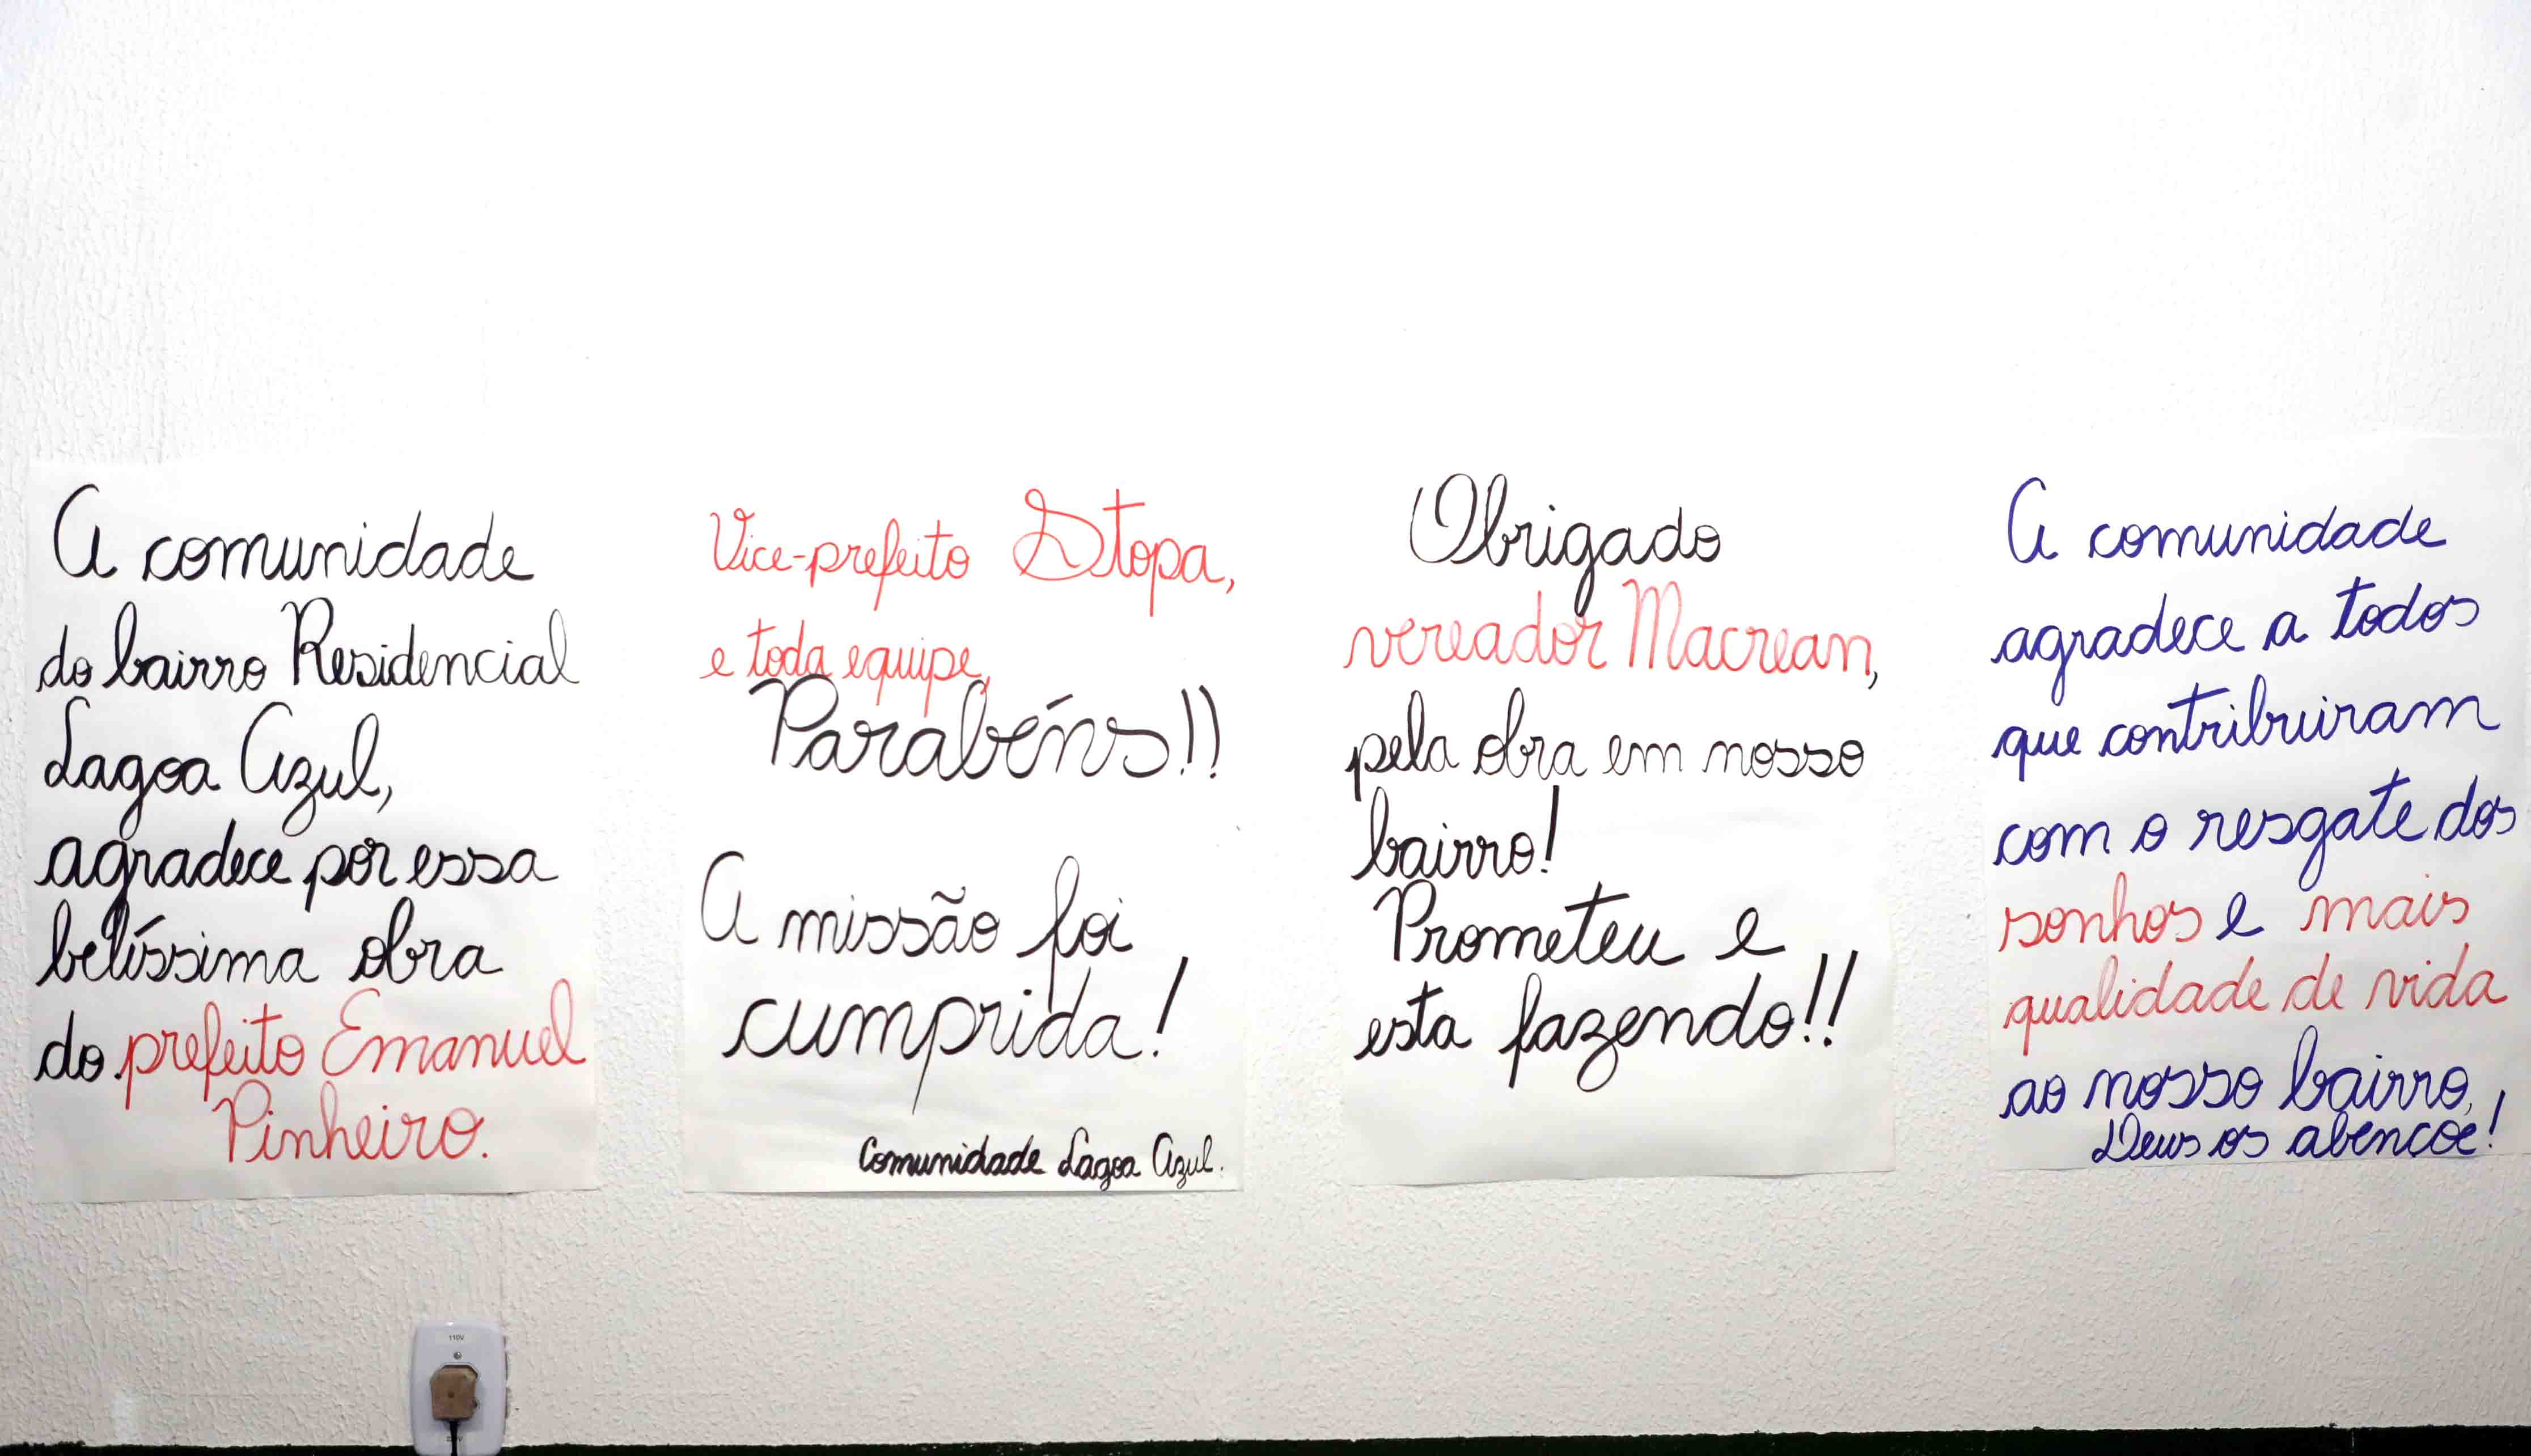 A comunidade
do bairro Residencial
Lagoa Azul,
agradece por essa
belíssima obra
do prefeito Emanuel
Pinheiro.
Vice-prefeito Stopa,
e toda equipe,
Parabéns!!
A missão foi
cumprida!
Comunidade Lagoa Azul.
Obrigado
vereador Macrean,
pela obra em nosso
bairro!
Prometeu e
esta fazendo!!
A comunidade
agradece a todos
que contribuiram
com o resgate dos
sonhos e mais
qualidade de vida
ao nosso bairro,
Deus os abencoe!
110V